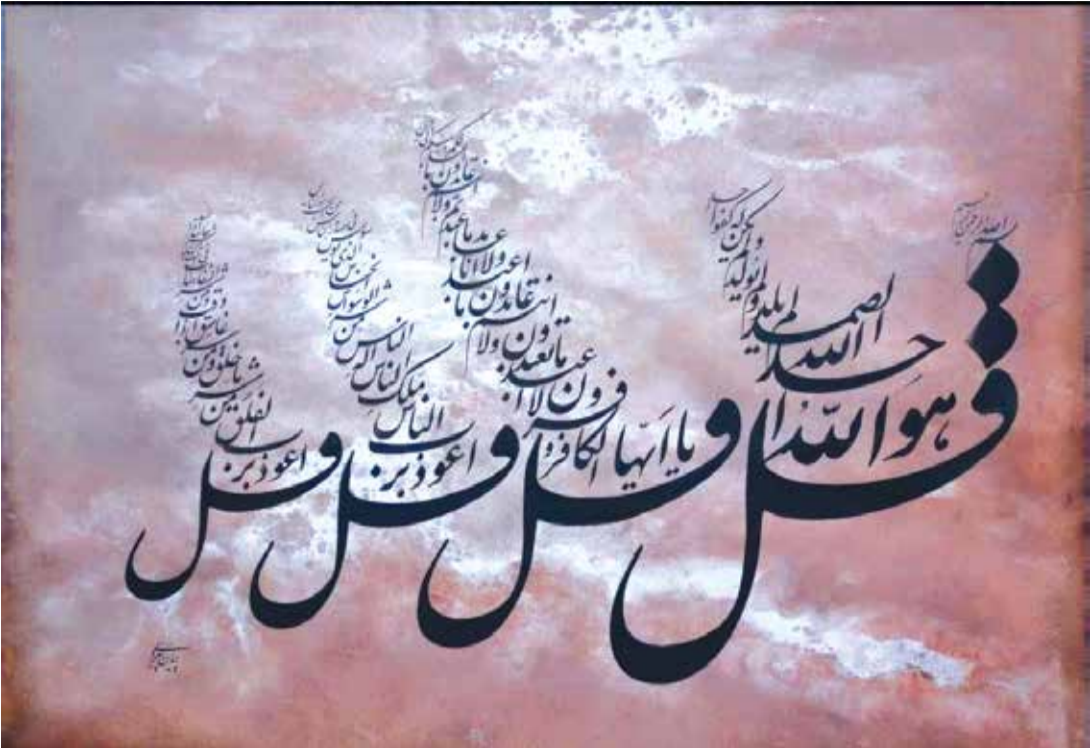 بسم الله الرحمن الرحیم
قل هو الله احد
الله الصمد
لم یلد ولم یولد
ولم یکن له کفوا احد
قل یا ایها الکافرون
لا اعبد ما تعبدون
ولا انتم عابدون ما اعبد
ولا انا عابد ما عبدتم
ولا انتم عابدون ما اعبد
لکم دینکم ولی دین
قل اعوذ برب الناس
ملک الناس
اله الناس
من شر الوسواس الخناس
الذی یوسوس فی صدور الناس
من الجنة والناس
قل اعوذ برب الفلق
من شر ما خلق
ومن شر غاسق اذا وقب
ومن شر النفاثات فی العقد
ومن شر حاسد اذا حسد